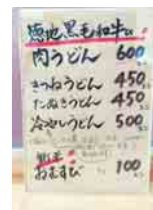 徳地黒毛和牛
肉うどん 600
きつねうどん 450
たぬきうどん 450
冷やしうどん 500
おむすび 100